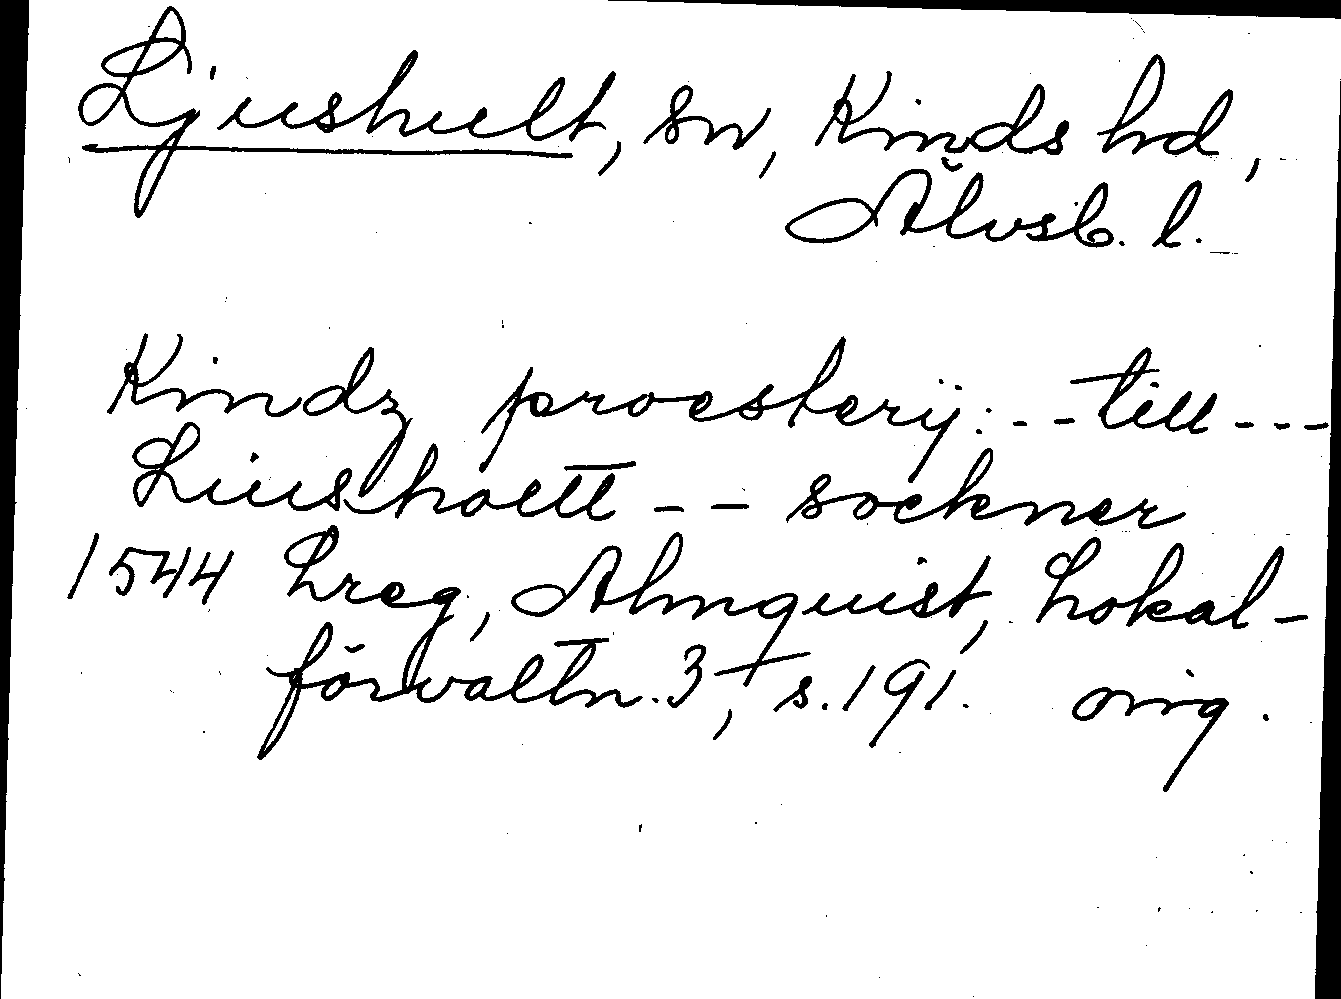 Ljushult, sn, Kinds hd,
Älvsb. l.
Kindz proesterij: -- till ---
Liusholtt -- sockner
1544 Lreg, Almquist, Lokal-
förvaltn. 3, s. 191. orig.